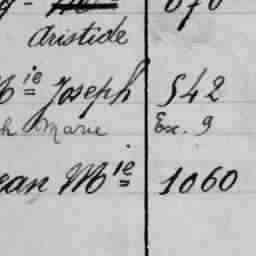 Aristide
Mie Joseph 542
Marie Ex. 9
ean Mie 1060